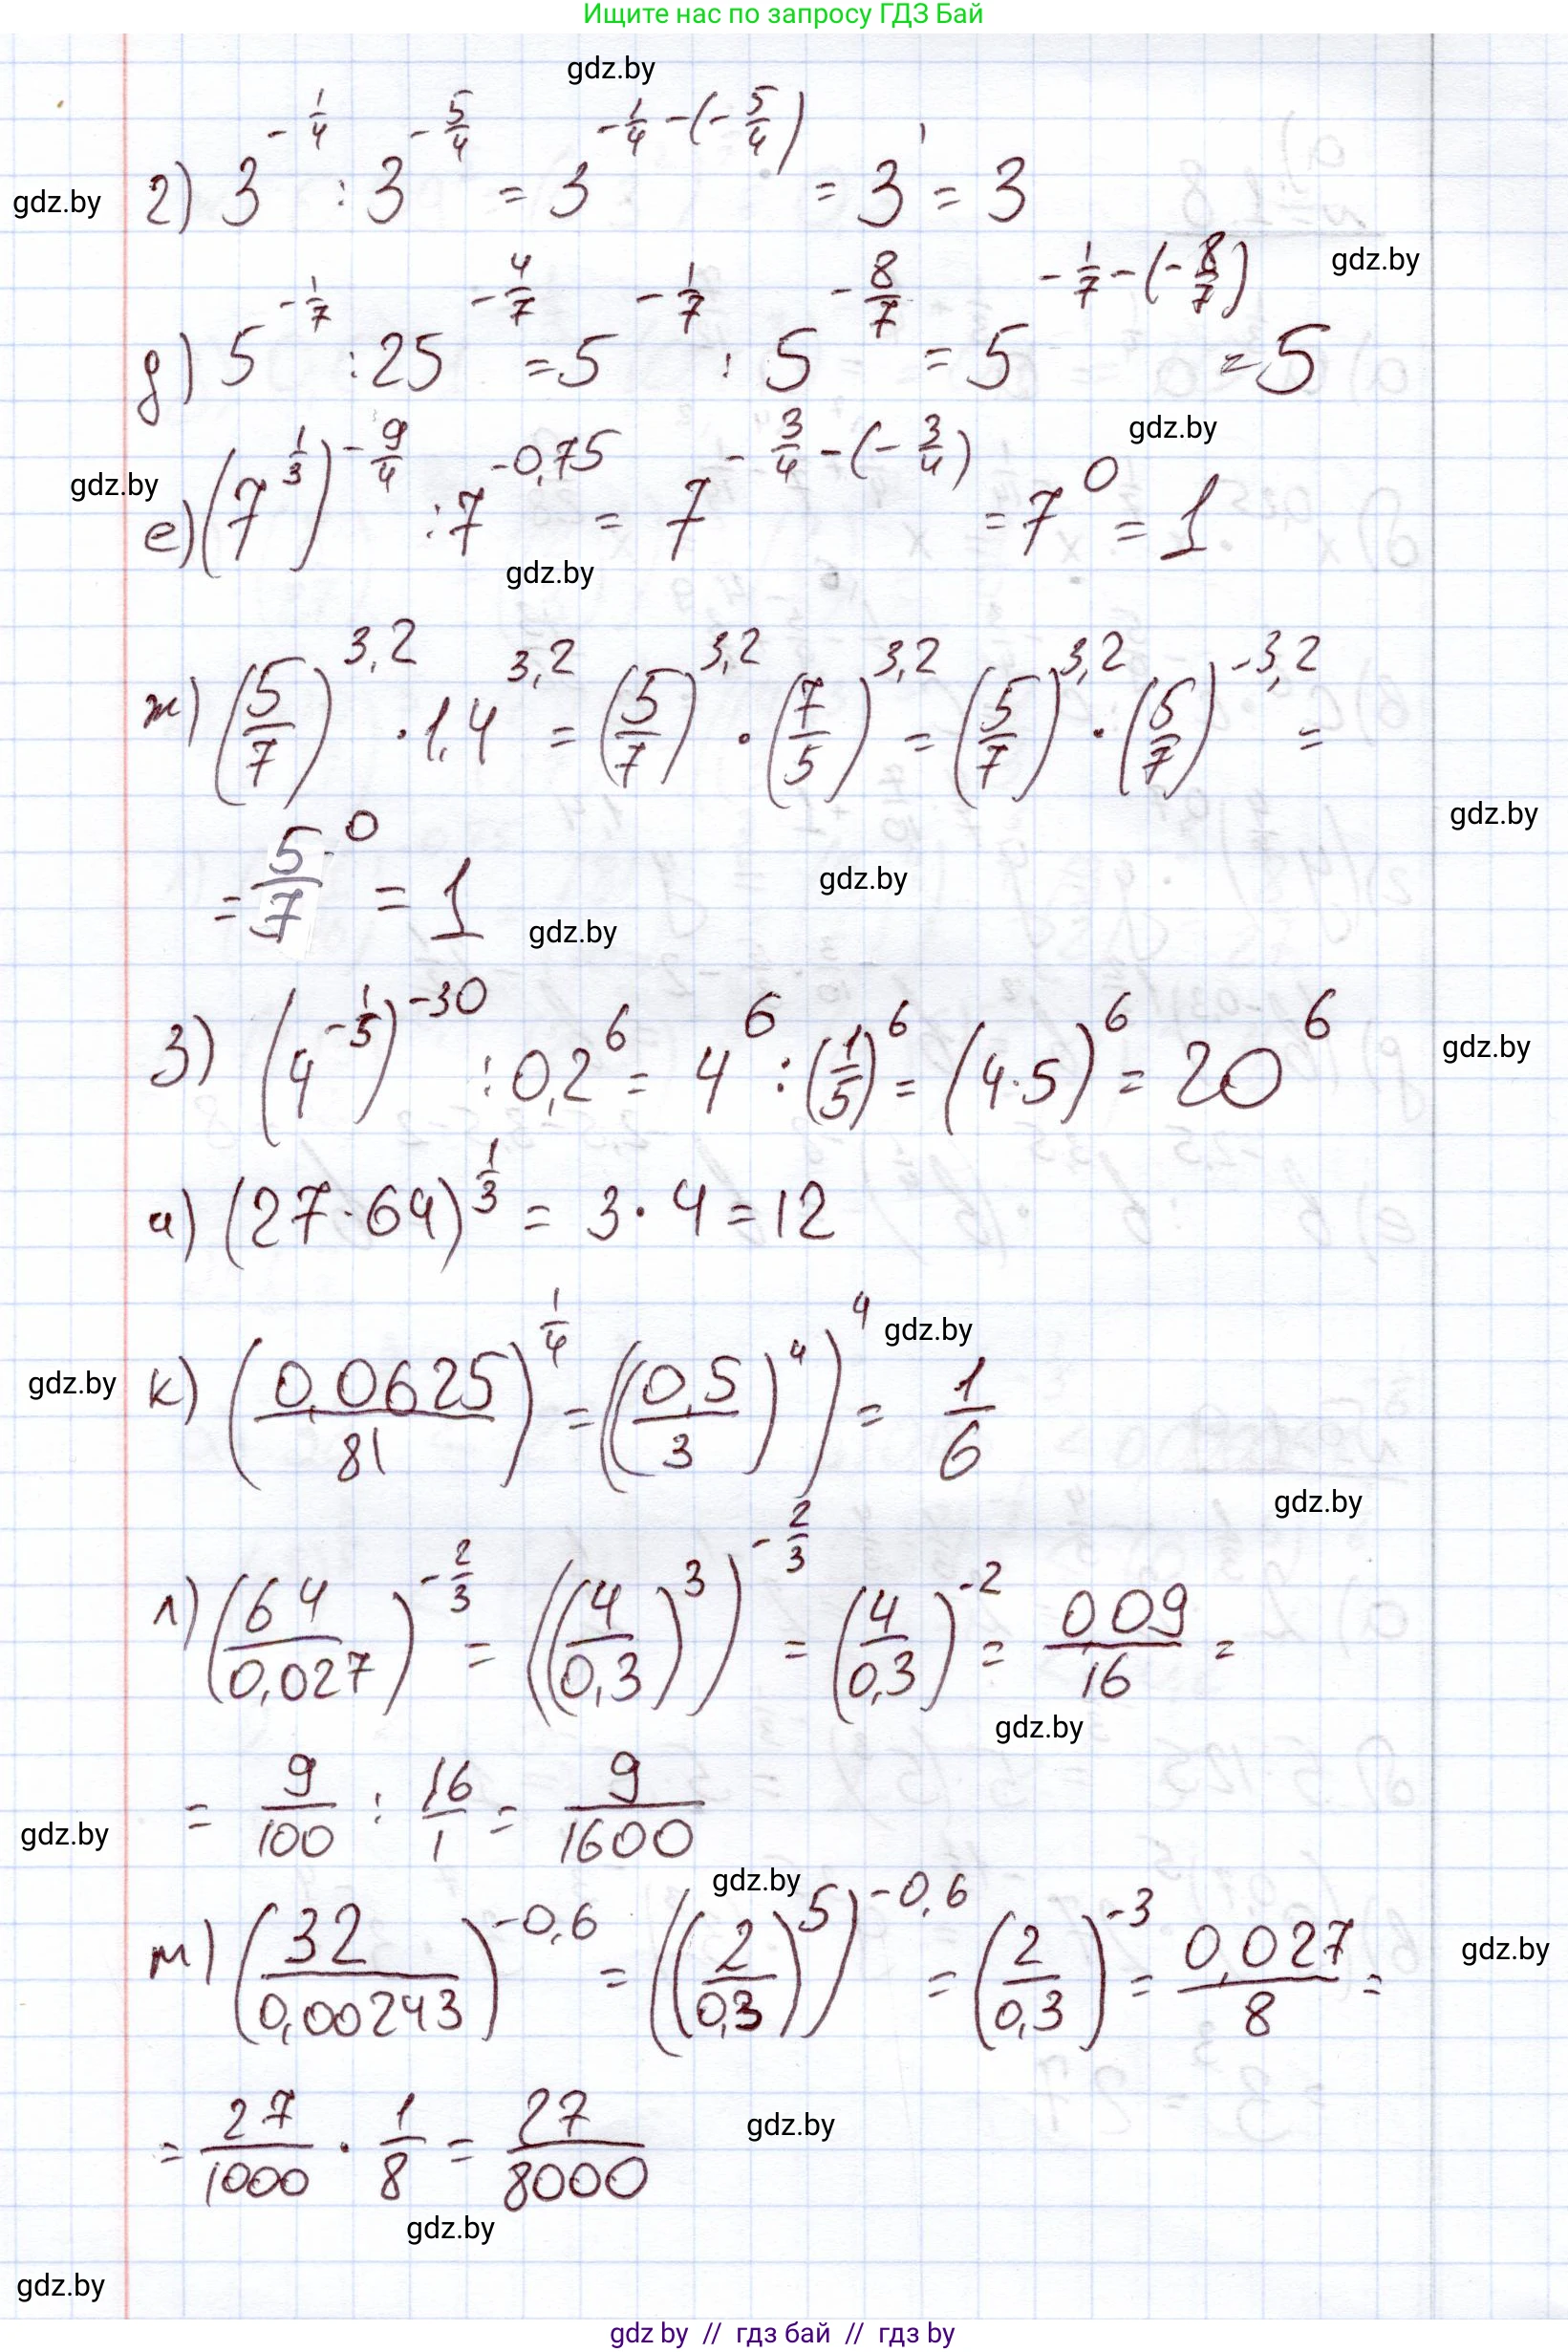 Ищите нас по запросу ГДЗ Бай
gdz.by
г) 3^(-1/4) : 3^(-5/4) = 3^(-1/4-(-5/4)) = 3^1 = 3
gdz.by
gdz.by
д) 5^(-1/7) : 25^(-4/7) = 5^(-1/7) : 5^(-8/7) = 5^(-1/7-(-8/7)) = 5
gdz.by
gdz.by
е) (7^(1/3))^(-9/4) : 7^(-0,75) = 7^(-3/4-(-3/4)) = 7^0 = 1
gdz.by
ж) (5/7)^(3,2) · 1,4^(3,2) = (5/7)^(3,2) · (7/5)^(3,2) = (5/7)^(3,2) · (5/7)^(-3,2) =
gdz.by
= 5/7^0 = 1
gdz.by
gdz.by
з) (4^(-1/5))^(-30) : 0,2^6 = 4^6 : (1/5)^6 = (4·5)^6 = 20^6
gdz.by
и) (27·64)^(1/3) = 3·4 = 12
gdz.by
gdz.by
к) (0,0625/81)^(1/4) = ((0,5/3)^4)^4 = 1/6
gdz.by
л) (64/0,027)^(-2/3) = ((4/0,3)^3)^(-2/3) = (4/0,3)^(-2) = 0,09/16 =
gdz.by
= 9/100 : 16/1 = 9/1600
gdz.by
gdz.by
м) (32/0,00243)^(-0,6) = ((2/0,3)^5)^(-0,6) = (2/0,3)^(-3) = 0,027/8 =
gdz.by
= 27/1000 · 1/8 = 27/8000
gdz.by
gdz.by
gdz.by
gdz by // гдз бай // гдз by